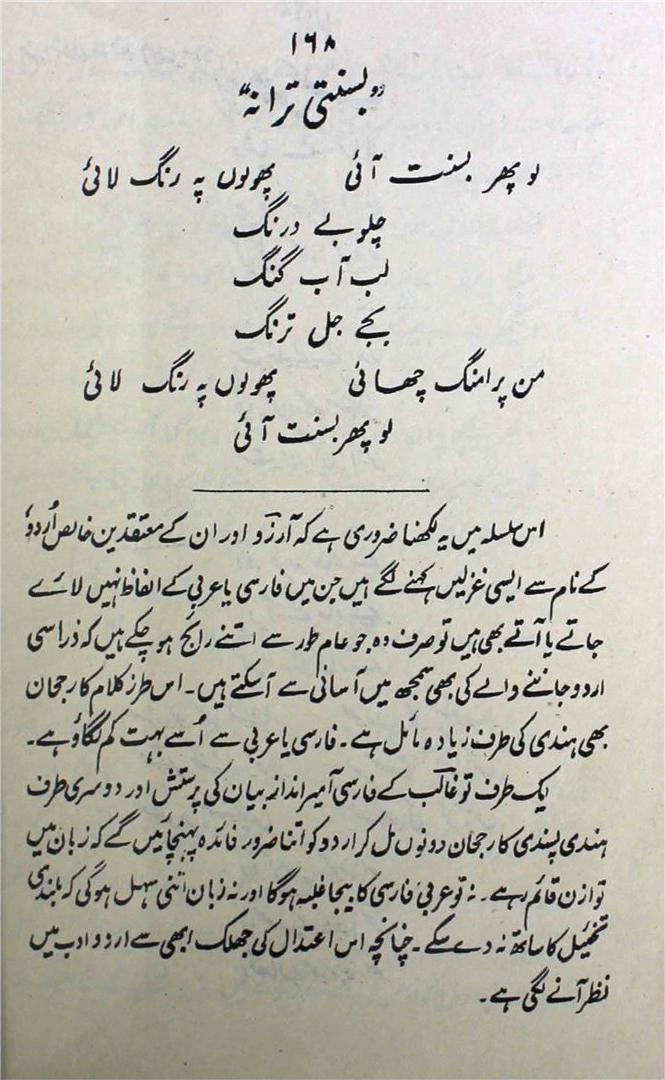 ۱۶۸
"بسنتی ترانہ"
لو پھر بسنت آئی پھولوں پہ رنگ لائی
چلو بے درنگ
لب آب گنگ
بجے جل ترنگ
من پر امنگ چھائی پھولوں پہ رنگ لائی
لو پھر بسنت آئی
اس سلسلہ میں یہ لکھنا ضروری ہے کہ آرزو اور ان کے معتقدین خالص اُردو
کے نام سے ایسی غزلیں کہنے لگے ہیں جن میں فارسی یا عربی کے الفاظ نہیں لائے
جاتے یا آتے بھی ہیں تو صرف وہ جو عام طور سے اتنے رائج ہو چکے ہیں کہ ذرا سی
اردو جاننے والے کی بھی سمجھ میں آسانی سے آ سکتے ہیں۔ اس طرز کلام کا رجحان
بھی ہندی کی طرف زیادہ مائل ہے۔ فارسی یا عربی سے اُسے بہت کم لگاؤ ہے۔
یک طرف تو غالب کے فارسی آمیز انداز بیان کی پرستش اور دوسری طرف
ہندی پسندی کا رجحان دونوں مل کر اردو کو اتنا ضرور فائدہ پہنچائیں گے کہ زبان میں
توازن قائم رہے۔ نہ تو عربی فارسی کا بیجا غلبہ ہوگا اور نہ زبان اتنی سہل ہوگی کہ بلندی
تخئیل کا ساتھ نہ دے سکے۔ چنانچہ اس اعتدال کی جھلک ابھی سے اردو ادب میں
نظر آنے لگی ہے۔